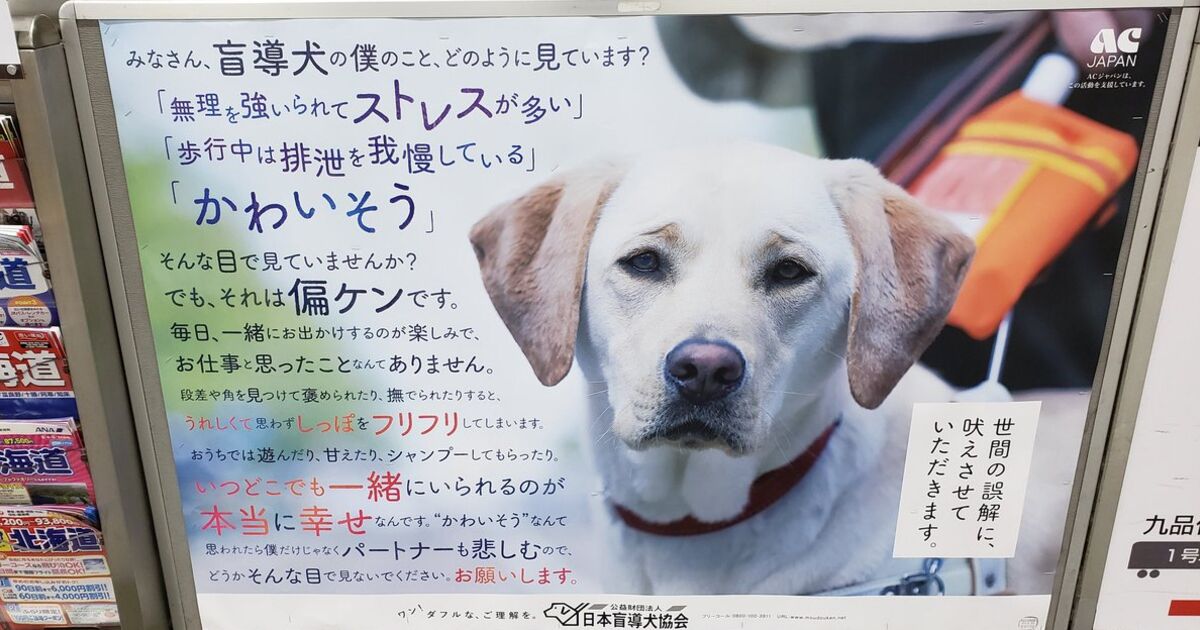 みなさん、盲導犬の僕のこと、どのように見ています?
「無理を強いられてストレスが多い」
「歩行中は排泄を我慢している」
「かわいそう」
そんな目で見ていませんか?
でも、それは偏ケンです。
毎日、一緒にお出かけするのが楽しみで、
お仕事と思ったことなんてありません。
段差や角を見つけて褒められたり、撫でられたりすると、
うれしくて思わずしっぽをフリフリしてしまいます。
おうちでは遊んだり、甘えたり、シャンプーしてもらったり。
いつどこでも一緒にいられるのが
本当に幸せなんです。“かわいそう”なんて
思われたら僕だけじゃなくパートナーも悲しむので、
どうかそんな目で見ないでください。お願いします。
世間の誤解に、
吠えさせて
いただきます。
AC
JAPAN
ACジャパンは、
この活動を支援しています。
ワン!ダフルな、ご理解を。
公益財団法人
日本盲導犬協会
道
海道
ANA
海道
北海道
90日前で6,000円割引!!
60日前で4,000円割引!!
九品
1号